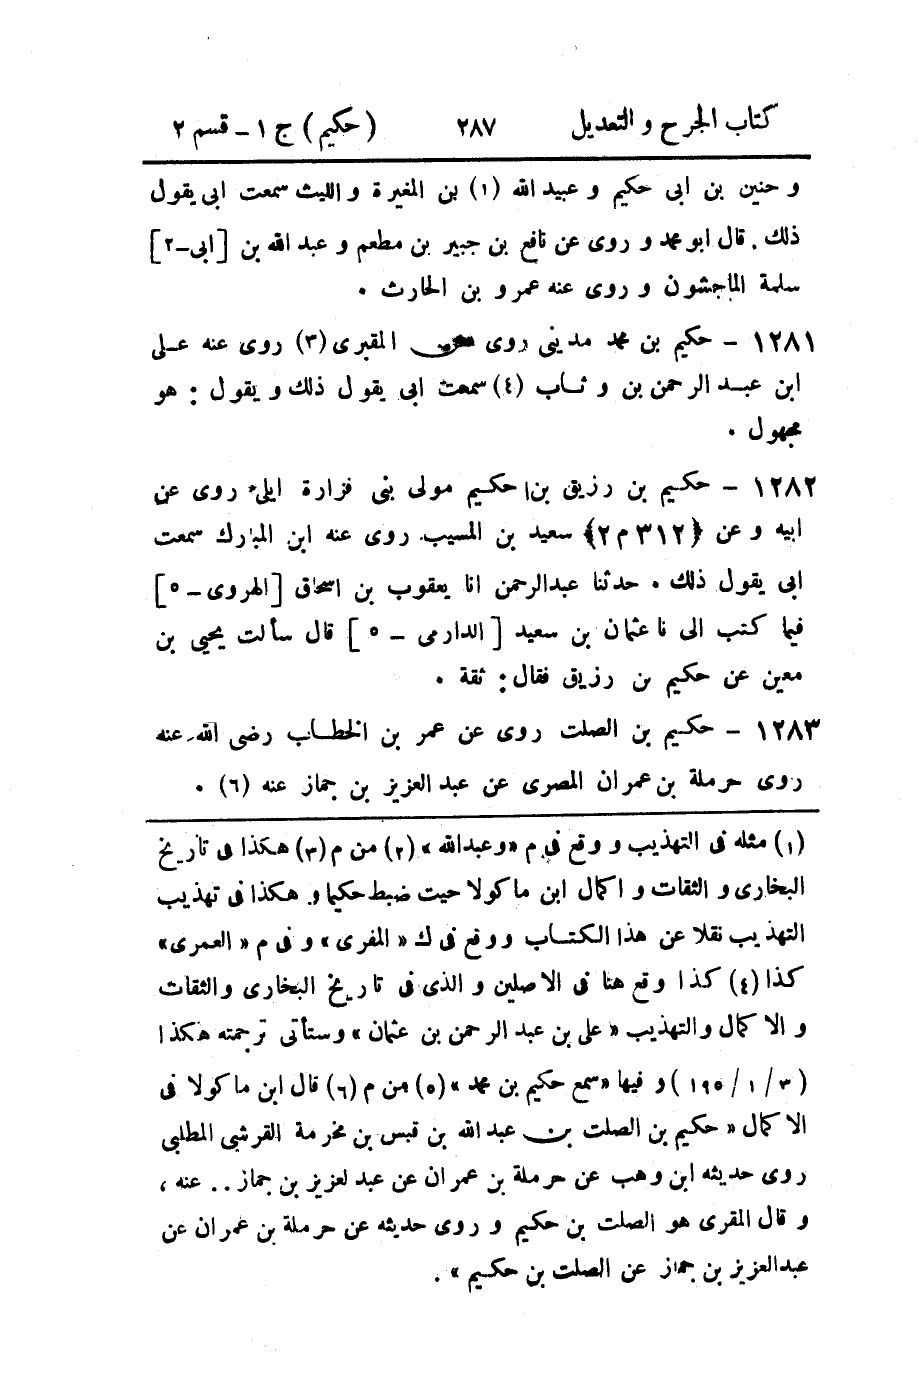 كتاب الجرح و التعديل ٢٨٧ (حكيم) ج ١ - قسم ٢
و حنين بن ابى حكيم و عبيد الله (١) بن المغيرة و الليث سمعت ابى يقول
ذلك . قال ابو محمد و روى عن نافع بن جبير بن مطعم و عبد الله بن [ابى-٢]
سلمة الماجشون و روى عنه عمرو بن الحارث .
١٢٨١ - حكيم بن محمد مدينى روى عن المقبرى (٣) روى عنه عـلى
ابن عبـد الرحمن بن و ثـاب (٤) سمعت ابى يقول ذلك و يقول : هو
مجهول .
١٢٨٢ - حكيم بن رزيق بن حكيم مولى بنى فزارة ايلى روى عن
ابيه و عن ﴿٣١٢ م ٢﴾ سعيد بن المسيب روى عنه ابن المبارك سمعت
ابى يقول ذلك . حدثنا عبدالرحمن انا يعقوب بن اسحاق [الهروى - ٥]
فيما كتب الى نا عثمان بن سعيد [الدارمى - ٥] قال سألت يحيى بن
معين عن حكيم بن رزيق فقال : ثقة .
١٢٨٣ - حكيم بن الصلت روى عن عمر بن الخطاب رضى الله عنه
روى حرملة بن عمران المصرى عن عبد العزيز بن جماز عنه (٦) .
(١) مثله فى التهذيب و وقع فى م «وعبدالله» (٢) من م (٣) هكذا فى تاريخ
البخارى و الثقات و اكمال ابن ماكولا حيث ضبط حكيما و هكذا فى تهذيب
التهذيب نقلا عن هذا الكتـاب و وقع فى ك « المفرى » و فى م « العمرى»
كذا (٤) كذا وقع هنا فى الاصلين و الذى فى تاريخ البخارى والثقات
و الاكمال والتهذيب « على بن عبد الرحمن بن عثمان » وستأتى ترجمته هكذا
(٣ / ١ / ١٩٥ ) و فيها «سمع حكيم بن محمد » (٥) من م (٦) قال ابن ماكولا فى
الاكمال « حكيم بن الصلت بن عبد الله بن قيس بن مخرمة القرشى المطلبى
روى حديثه ابن وهب عن حرملة بن عمران عن عبد لعزيز بن جماز .. عنه ،
و قال المقرى هو الصلت بن حكيم و روى حديثه عن حرملة بن عمران عن
عبدالعزيز بن جماز عن الصلت بن حكيم » .